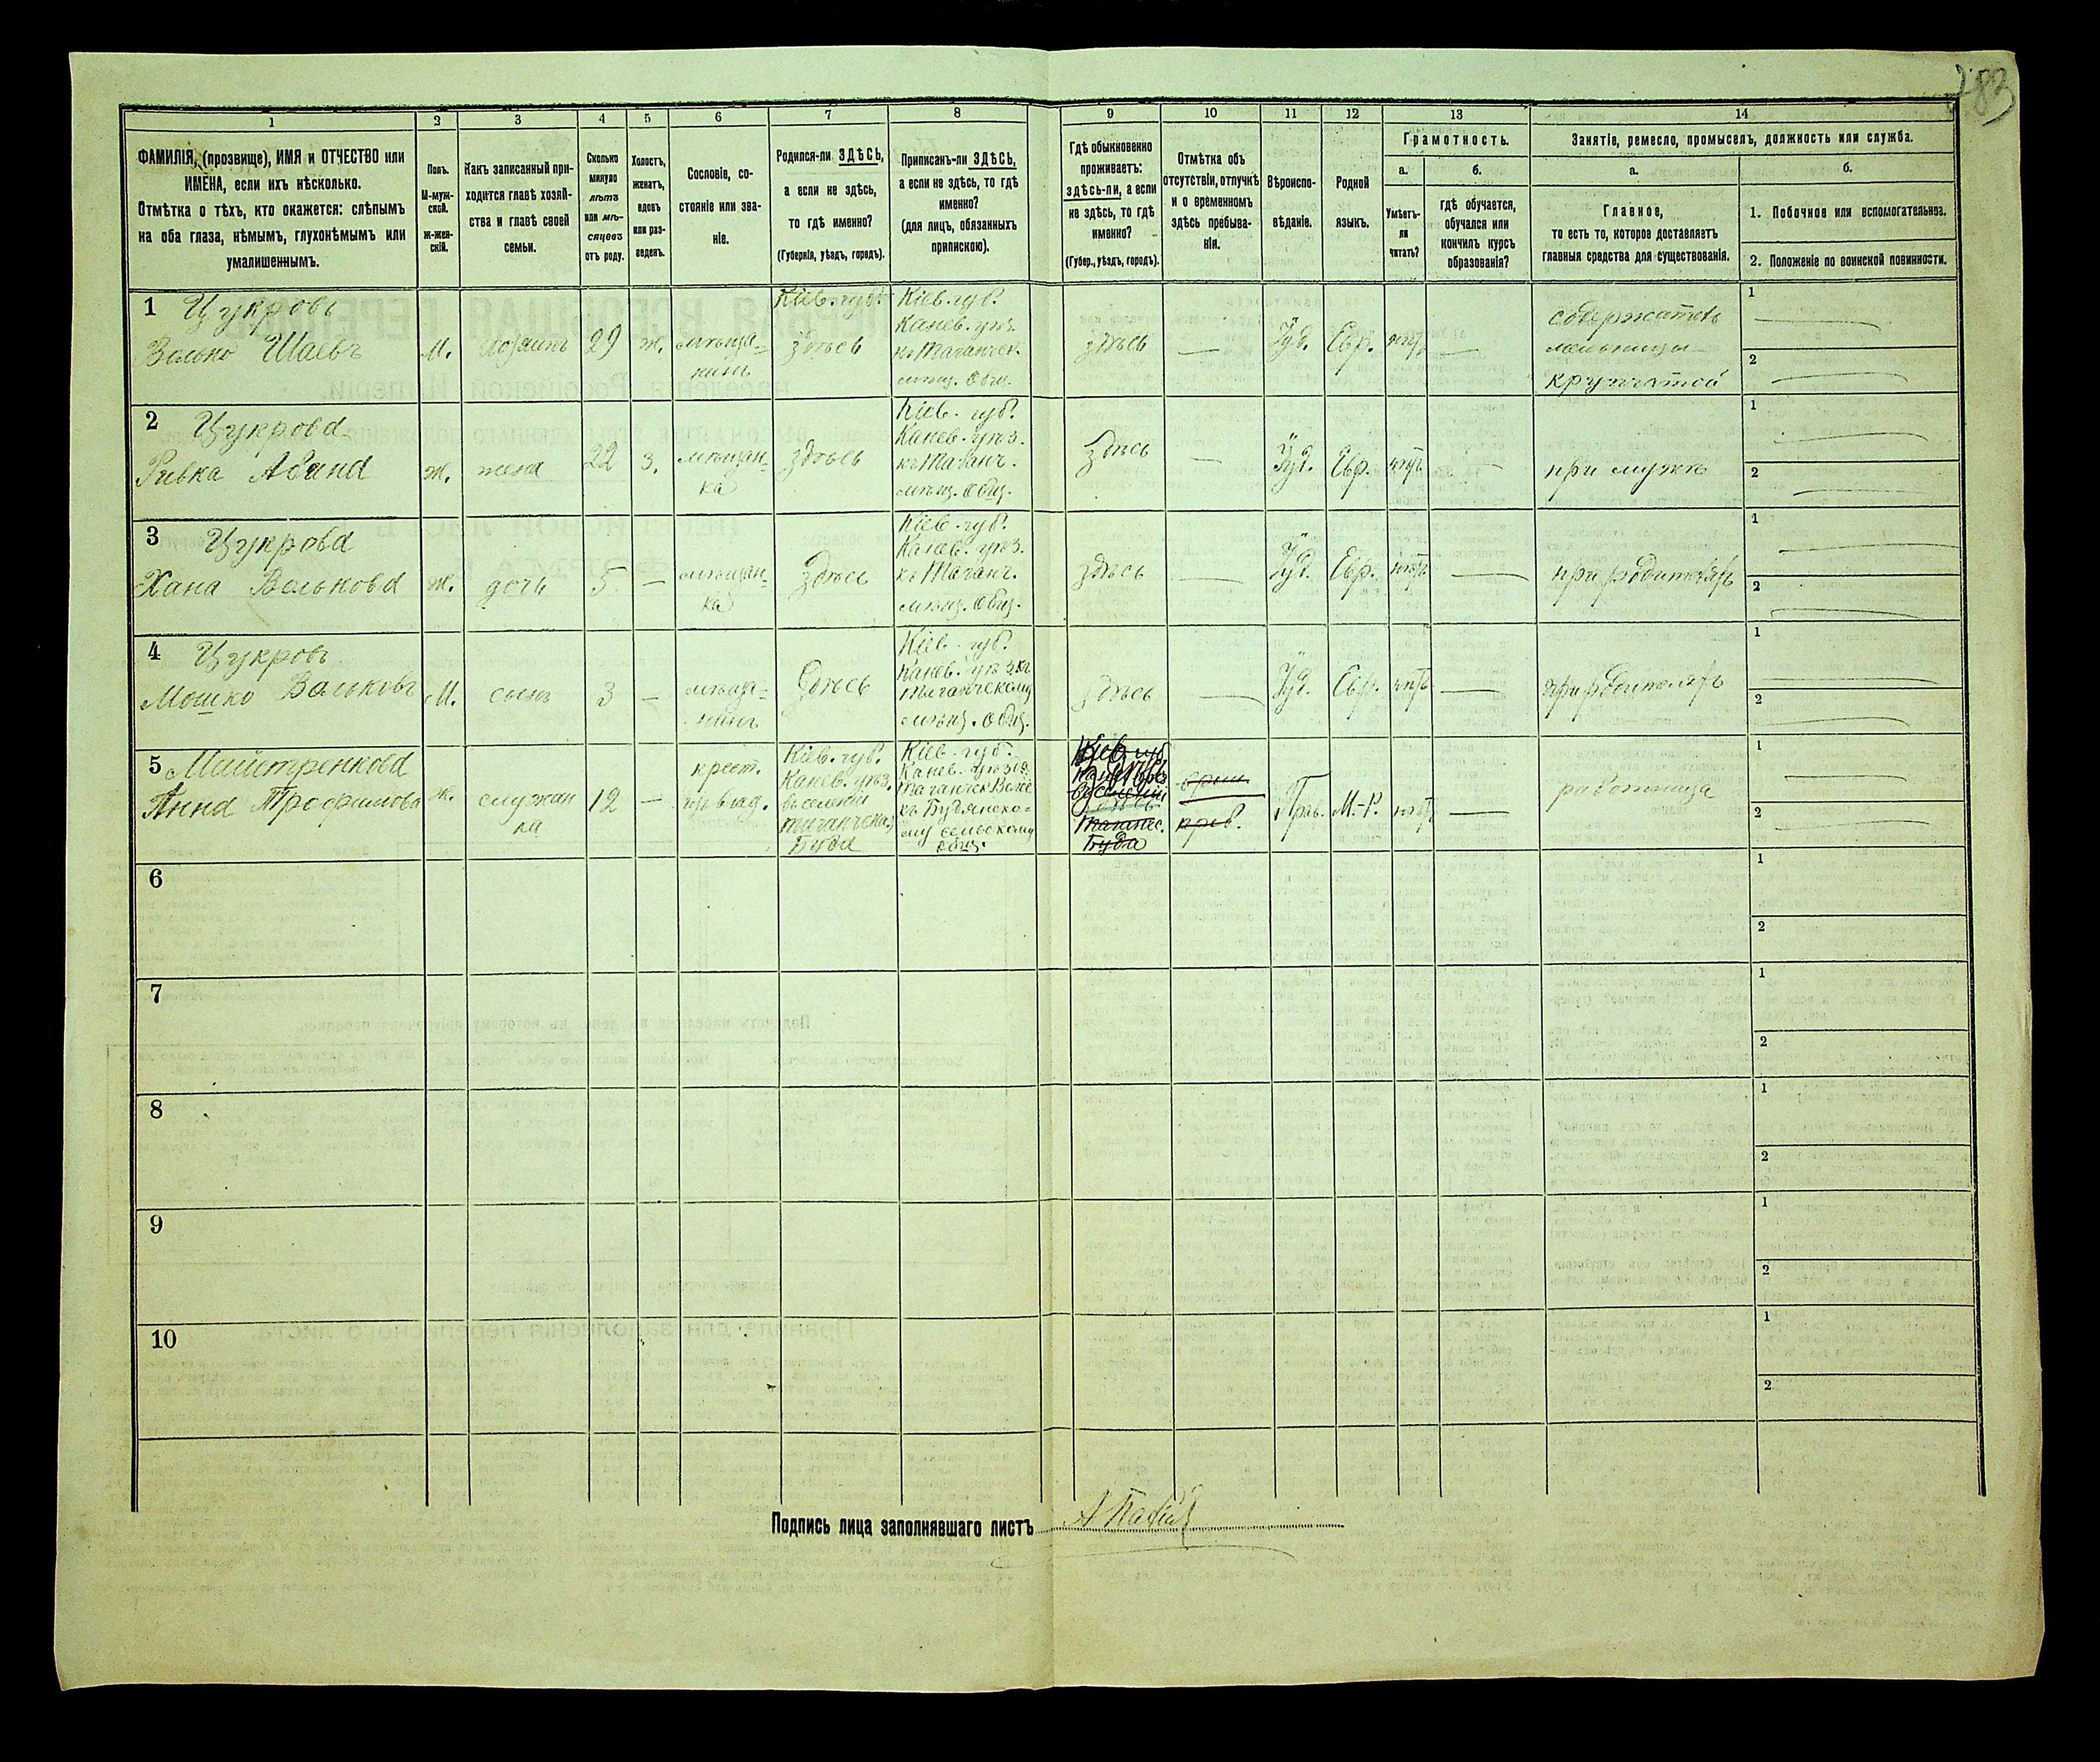 283
1 2 3 4 5 6 7 8 9 10 11 12 13 14
ФАМИЛІЯ, (прозвище), ИМЯ и ОТЧЕСТВО или
ИМЕНА, если ихъ нѣсколько.
Отмѣтка о тѣхъ, кто окажется: слѣпымъ
на оба глаза, нѣмымъ, глухонѣмымъ или
умалишеннымъ.
Полъ.
М-муж-
ской.
Ж-жен-
скій.
Какъ записанный при-
ходится главѣ хозяй-
ства и главѣ своей
семьи.
Сколько
минуло
лѣтъ
или мѣ-
сяцевъ
отъ роду.
Холостъ,
женатъ,
вдовъ
или раз-
веденъ.
Сословіе, со-
стояніе или зва-
ніе.
Родился-ли ЗДѢСЬ,
а если не здѣсь,
то гдѣ именно?
(Губернія, уѣздъ, городъ).
Приписанъ-ли ЗДѢСЬ,
а если не здѣсь, то гдѣ
именно?
(для лицъ, обязанныхъ
припискою).
Гдѣ обыкновенно
проживаетъ:
здѣсь-ли, а если
не здѣсь, то гдѣ
именно?
(Губер., уѣздъ, городъ).
Отмѣтка объ
отсутствіи, отлучкѣ
и о временномъ
здѣсь пребыва-
ніи.
Вѣроиспо-
вѣданіе.
Родной
языкъ.
Грамотность.
а.
Умѣетъ-
ли
читать?
б.
гдѣ обучается,
обучался или
кончилъ курсъ
образованія?
Занятіе, ремесло, промыселъ, должность или служба.
а.
Главное,
то есть то, которое доставляетъ
главныя средства для существованія.
б.
1. Побочное или вспомогательное.
2. Положеніе по воинской повинности.
1 Цукровъ
Волько Шаевъ
М.
хозяинъ
29
ж.
мѣща-
нинъ
Кіев. губ.
здѣсь
Кіев. губ.
Канев. уѣз.
къ Таганчск.
мѣщ. Общ.
здѣсь
—
Іуд.
Евр.
нѣтъ
—
содержатель
мельницы
крупчатой
1
2
2 Цукрова
Ривка
ж.
жена
22
З.
мѣщан-
ка
здѣсь
Кіев. губ.
Канев. уѣз.
къ Таганч.
мѣщ. Общ.
здѣсь
—
Іуд.
Евр.
нѣтъ
—
при мужѣ
1
2
3 Цукрова
Хана Волькова
ж.
дочь
5
—
мѣщан-
ка
здѣсь
Кіев. губ.
Канев. уѣз.
къ Таганч.
мѣщ. Общ.
здѣсь
—
Іуд.
Евр.
нѣтъ
—
при родителяхъ
1
2
4 Цукровъ
Мошко Вольковъ
М.
сынъ
3
—
мѣща-
нинъ
здѣсь
Кіев. губ.
Канев. уѣз. къ
Таганчскому
мѣщ. Общ.
здѣсь
—
Іуд.
Евр.
нѣтъ
—
при родителяхъ
1
2
5 Майстренкова
Анна Трофимова
ж.
служан
ка
12
—
крест.
Кіев. губ.
Канев. уѣз.
въ селеніи
Буда
Кіев. губ.
Канев. уѣзда
къ Будянско-
му сельскому
общ.
Кіев. губ.
Буда
Прав.
М.-Р.
нѣтъ
—
работница
1
2
6
1
2
7
1
2
8
1
2
9
1
2
10
1
2
Подпись лица заполнявшаго листъ